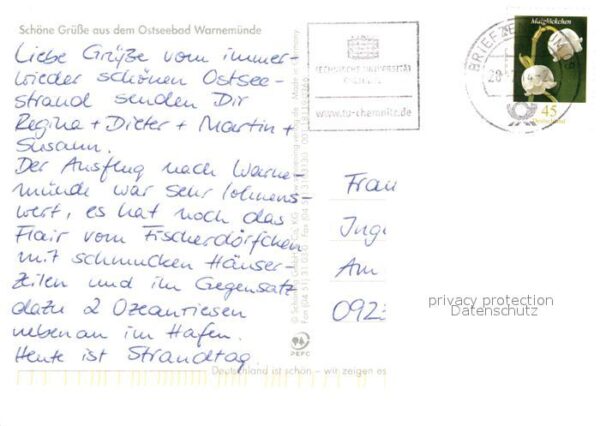 Schöne Grüße aus dem Ostseebad Warnemünde
Liebe Grüße vom immer-
wieder schönen Ostsee-
strand senden Dir
Regina + Dieter + Martin +
Susann.
Der Ausflug nach Warne-
münde war sehr lohnens-
wert, es hat noch das
Flair vom Fischerdörfchen
mit schmucken Häuser-
zeilen und im Gegensatz
dazu 2 Ozeanriesen
nebenan im Hafen.
Heute ist Strandtag.
TECHNISCHE UNIVERSITÄT
CHEMNITZ
www.tu-chemnitz.de
BRIEFZE
Maiglöckchen
45
Deutschland
Frau
Ing
Am
092
privacy protection
Datenschutz
Made in Germany
PEFC
Deutschland ist schön – wir zeigen es